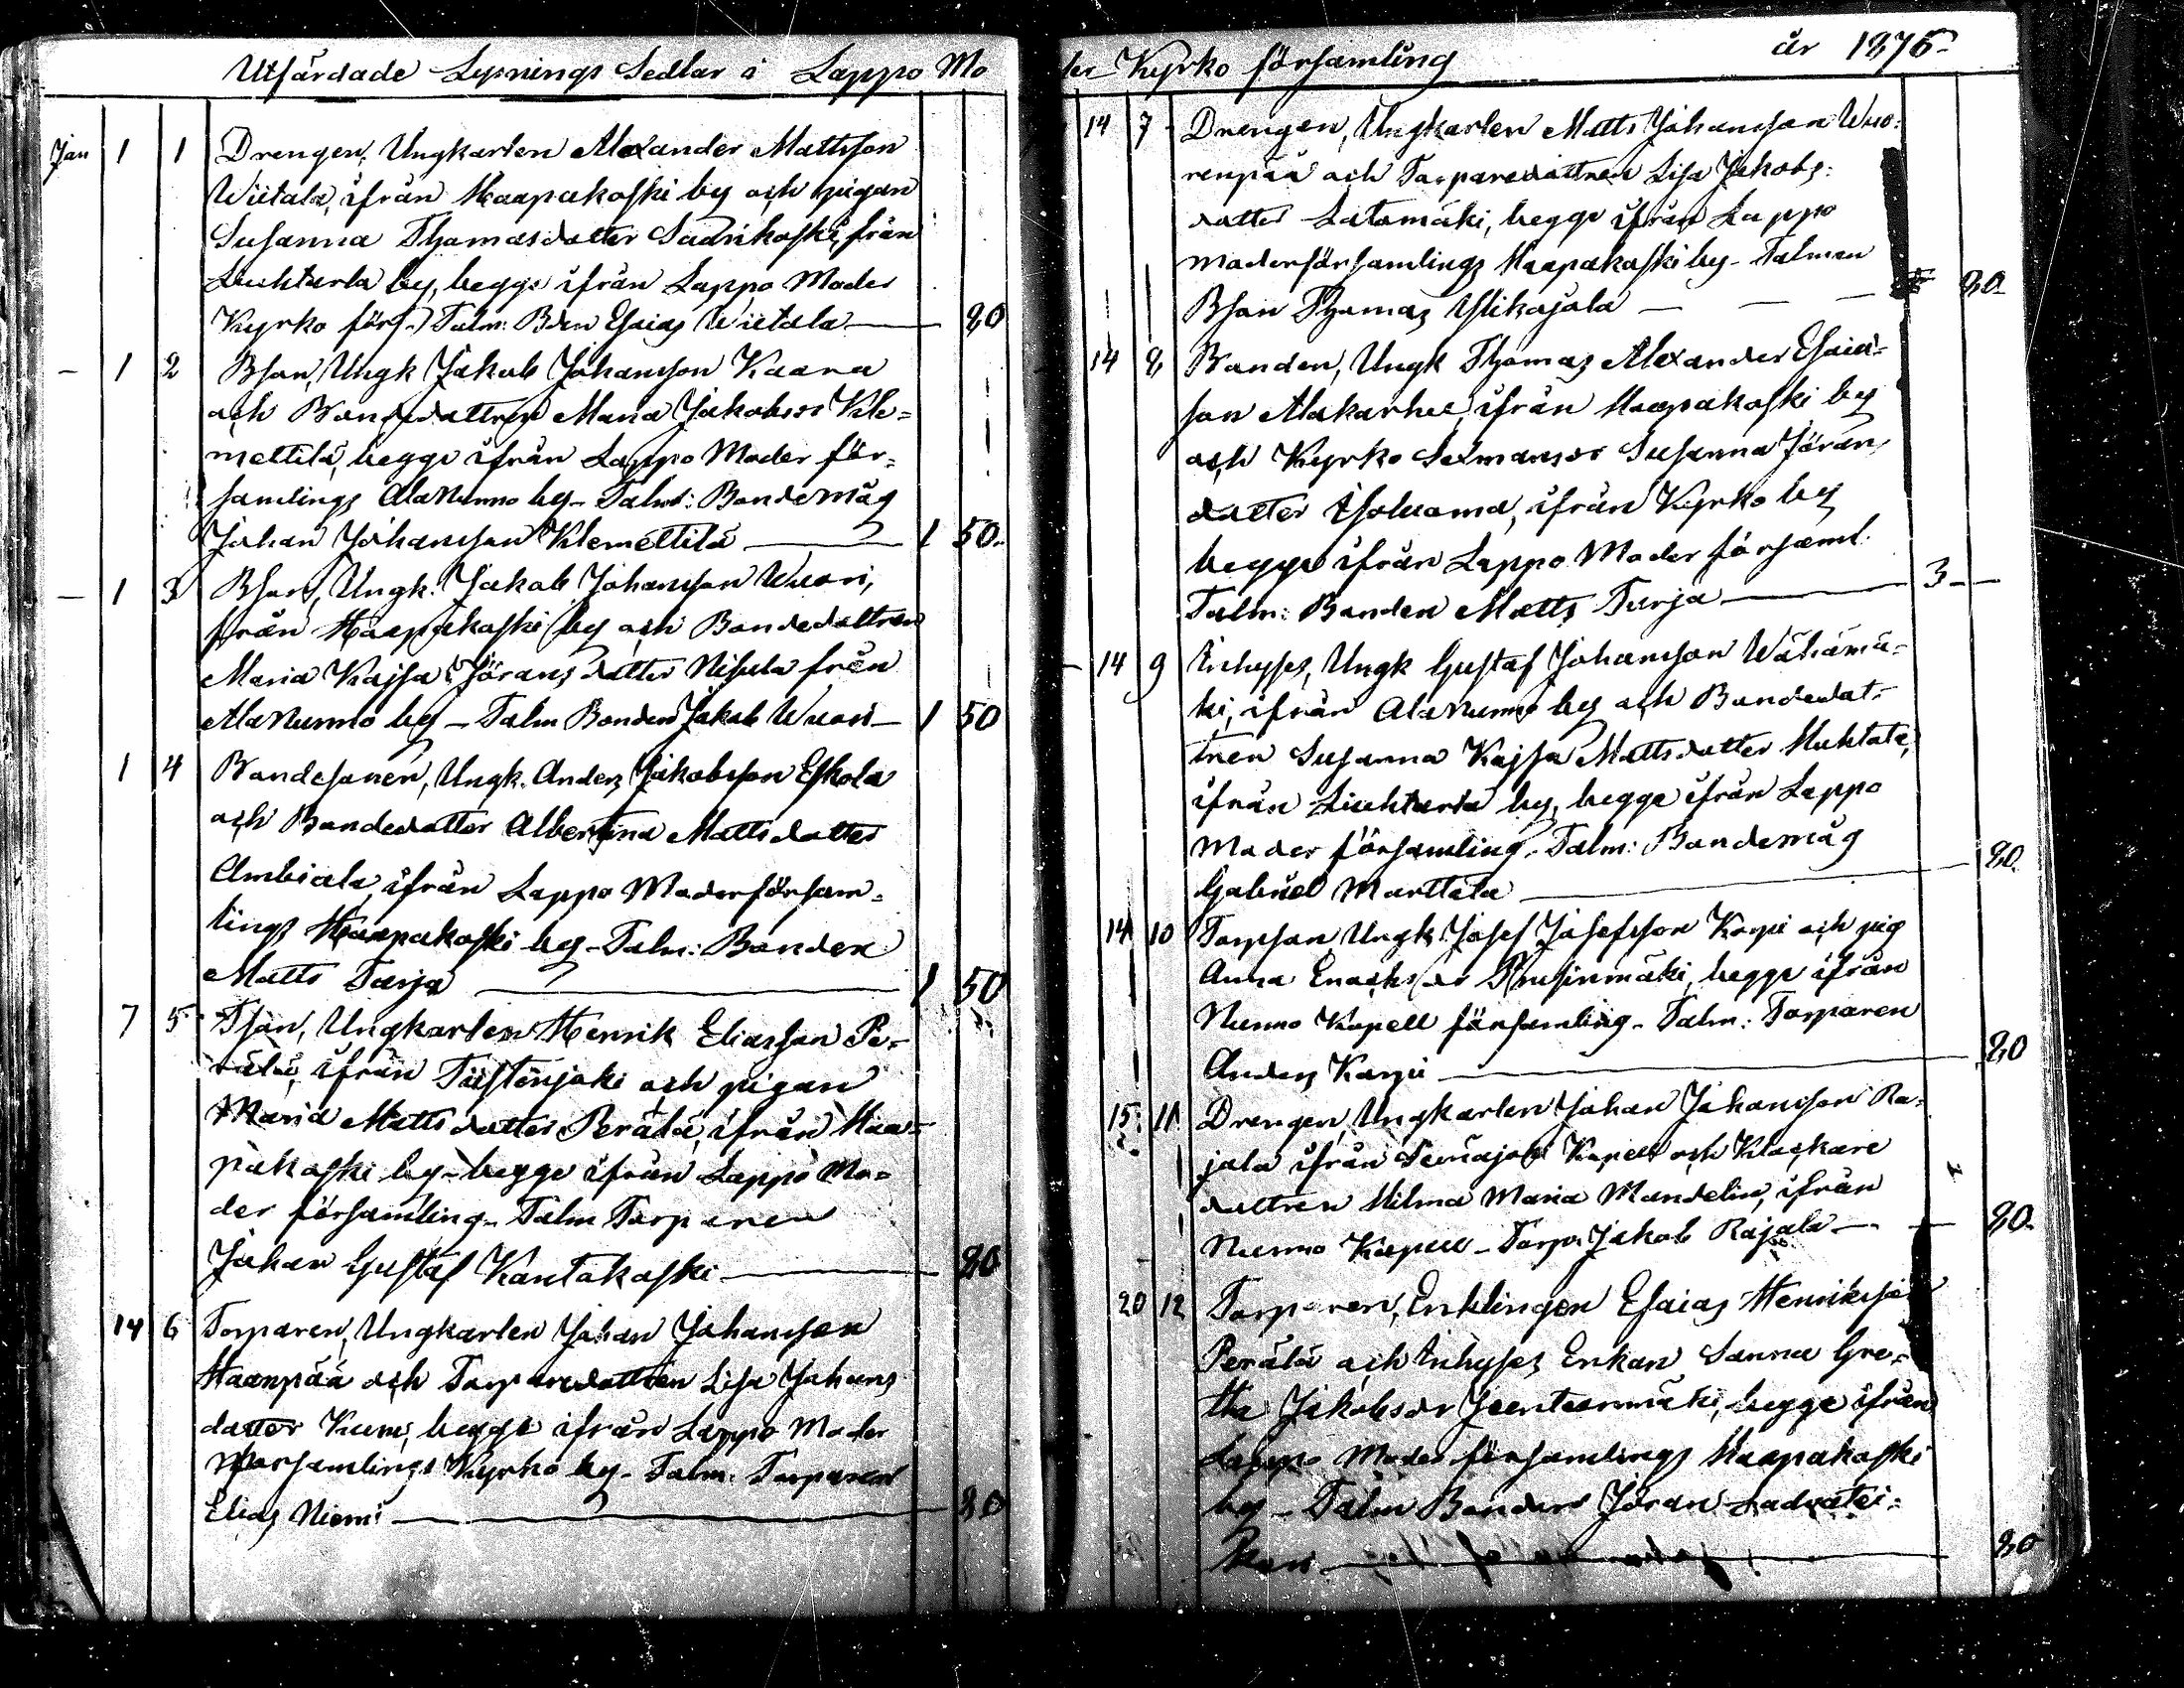 Utfärdade Lysnings Sedlar i Lappo Mo
Jan 1 1 Drengen, Ungkarlen Alexander Mattsson
Wiitala, ifrån Haapakoski by och pigan
Susanna Thomasdotter Saarikoski, från
Liuhtarla by, begge ifrån Lappo Moder
Kyrko förs. Talm: Bden Esaias Wiitala — 80
— 1 2 Bson, Ungk Jakob Johansson Kaara
och Bondedottren Maria Jakobsdr Kle=
mettilä, begge ifrån Lappo Moder för=
samlings Alanurmo by - Talm: Bondemåg
Johan Johansson Klemettilä — 1 50.
— 1 3 Bson, Ungk. Jakob Johansson Wuori,
från Haapakoski by och Bondedottren
Maria Kajsa Jöransdotter Nisula från
Alanurmo by - Talm Bonden Jakob Wuori — 1 50
1 4 Bondesonen, Ungk. Anders Jakobsson Eskola
och Bondedotter Albertina Mattsdotter
Ambiala, ifrån Lappo Moderförsam=
lings Haapakoski by - Talm: Bonden
Matts Turja — 1 50
7 5 Tson, Ungkarlen Henrik Eliasson Pe=
rälä, ifrån Tiistenjoki och pigan
Maria Mattsdotter Perälä, ifrån Haa=
pakoski by - begge ifrån Lappo Mo=
der församling - Talm Torparen
Johan Gustaf Kantakoski — 80
14 6 Torparen, Ungkarlen Johan Johansson
Haanpää och Torparedottren Lisa Johans
dotter Kuni, begge ifrån Lappo Moder
församlings Kyrko by - Talm. Torparen
Elias Niemi — 80
der Kyrko församling år 1876
14 7 Drengen, Ungkarlen Matts Johansson Wuo=
renpää och Torparedottren Lisa Jakobs=
dotter Latomäki, begge ifrån Lappo
moderförsamlings Haapakoski by - Talman
Bson Thomas Ylikojola — 80
14 8 Bonden, Ungk Thomas Alexander Esaia=
son Alakarhu, ifrån Haapakoski by
och Kyrko Sexmansdr Susanna Jöran
dotter Isoluoma, ifrån Kyrko by
begge ifrån Lappo Moder församl.
Talm: Bonden Matts Turja — 3 —
— 14 9 Inhyses, Ungk Gustaf Johansson Wähämä=
ki, ifrån Alanurmo by och Bondedot=
tren Susanna Kajsa Mattsdotter Huhtala,
ifrån Liuhtarla by, begge ifrån Lappo
Moder församling. Talm: Bondemåg
Gabriel Marttala — 80.
14 10 Torpson, Ungk Josef Josefsson Korpi och pig
Anna Enochsdr begge ifrån
Nurmo Kapell församling - Talm: Torparen
Anders Korpi — 80
15 11 Drengen, Ungkarlen Johan Johansson Ra=
jala ifrån Kapell och Klockare
dottren Hilma Maria Mandelin, ifrån
Nurmo Kapell - Torp. Jakob Rajala — 80.
20 12 Torparen, Enklingen Esaias Henriksson
Perälä och Inhyses Enkan Sanna Gre=
tha Jakobsdr begge ifrån
Lappo Moder församlings Haapakoski
by - Talm Bonden Jöran
— 80